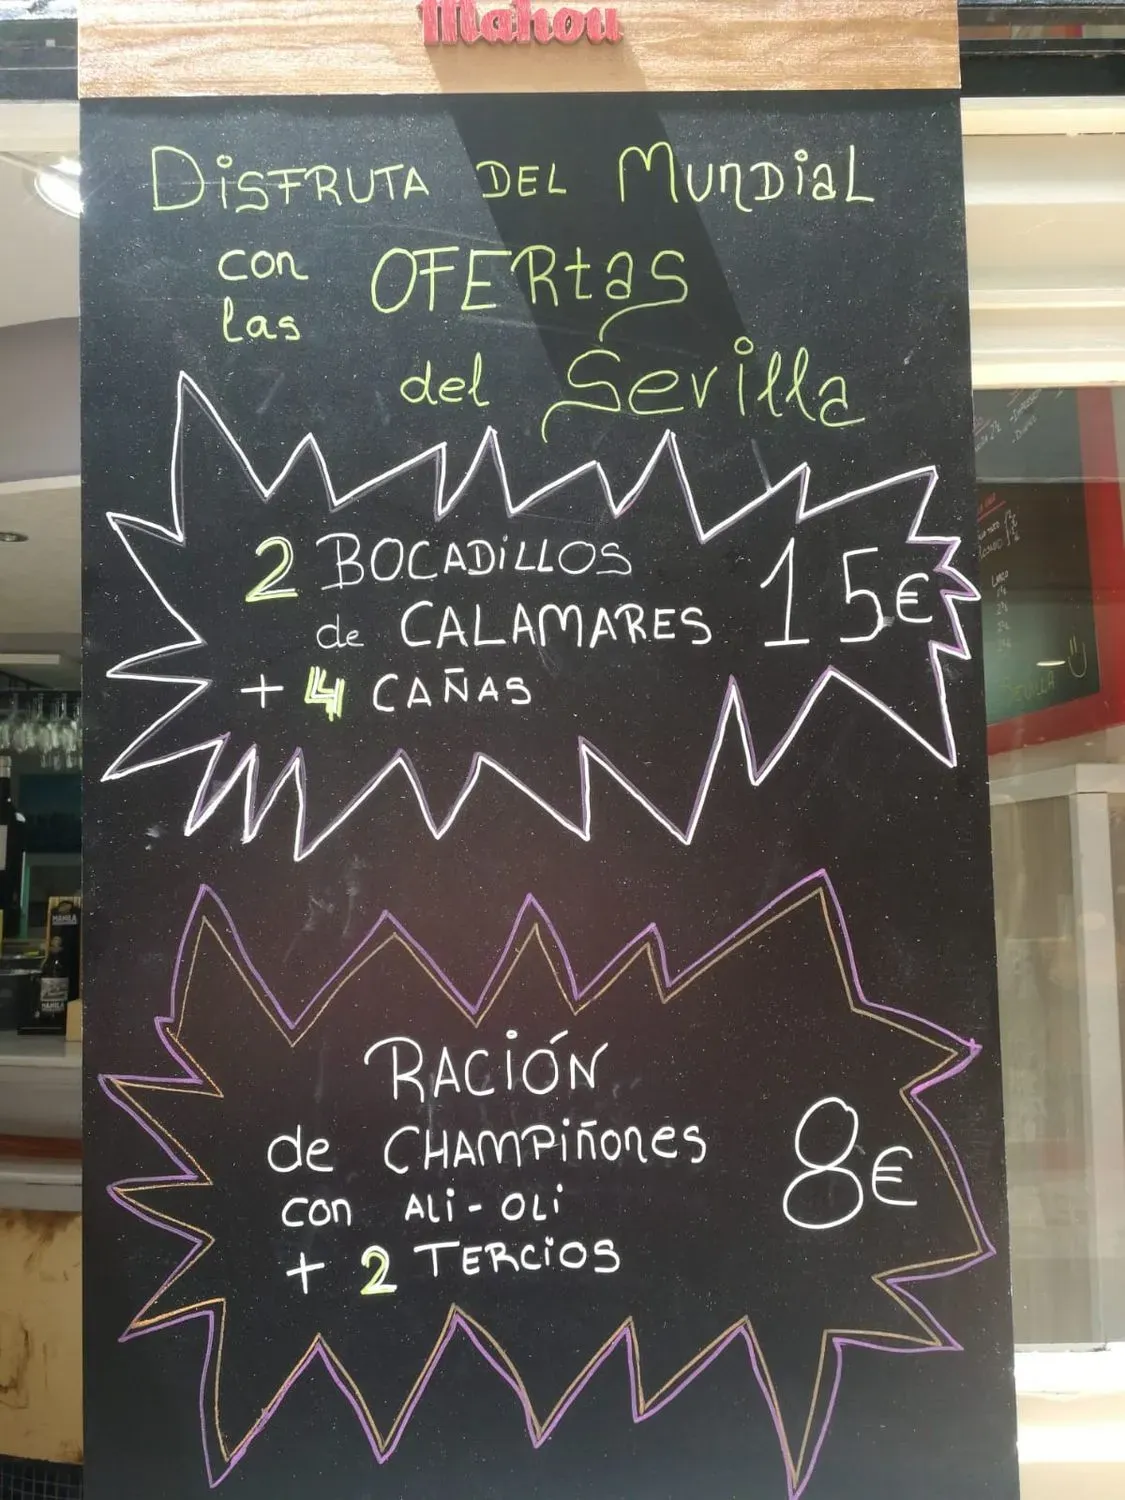 Mahou
DISFRUTA DEL MUNDIAL
con las OFERtas
del Sevilla
2 BOCADILLOS
de CALAMARES 15€
+ 4 CAÑAS
RACIÓN
de CHAMPIÑONES
con ALI-OLI 8€
+ 2 TERCIOS
MAHLA